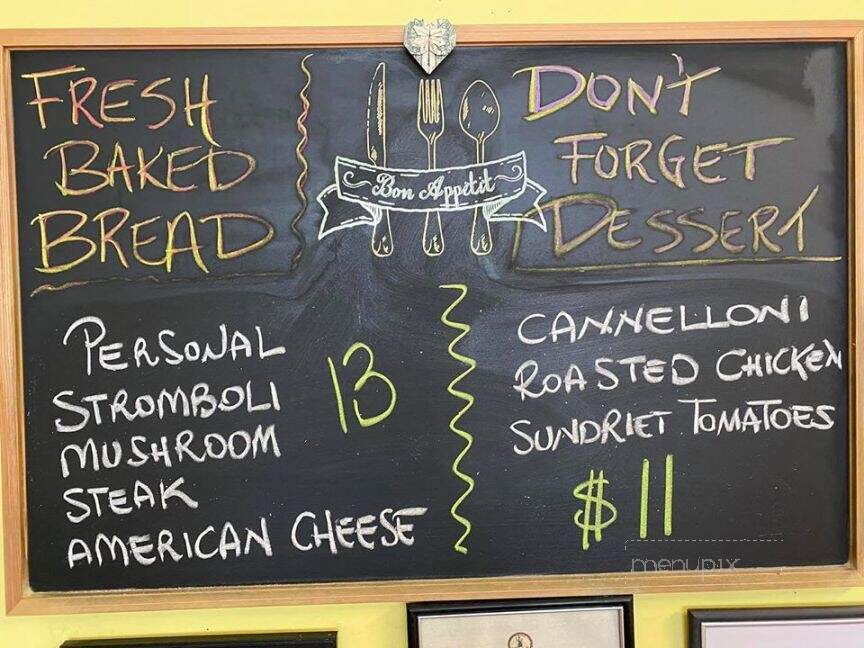 FRESH
BAKED
BREAD
Bon Appétit
DON'T
FORGET
DESSERT
PERSONAL
STROMBOLI
MUSHROOM
STEAK
AMERICAN CHEESE
13
CANNELLONI
ROASTED CHICKEN
SUNDRIET TOMATOES
$11
menupix